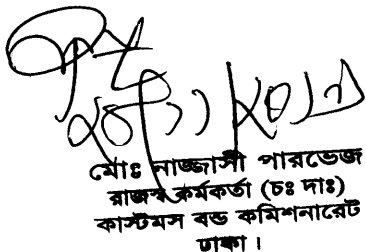 মোঃ নাজ্জাসী পারভেজ
রাজস্ব কর্মকর্তা (চঃ দাঃ)
কাস্টমস বন্ড কমিশনারেট
ঢাকা।